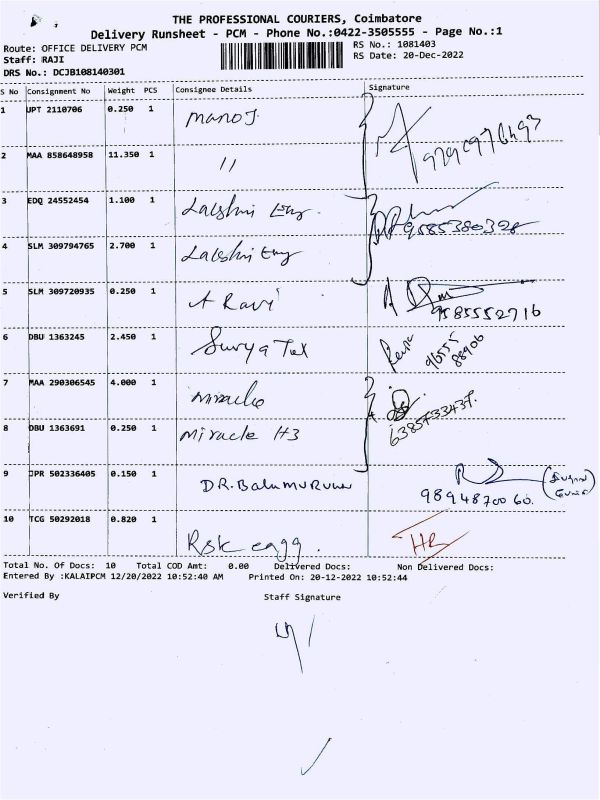 THE PROFESSIONAL COURIERS, Coimbatore
Delivery Runsheet - PCM - Phone No.:0422-3505555 - Page No.:1
Route: OFFICE DELIVERY PCM
RS No.: 1081403
Staff: RAJI
RS Date: 20-Dec-2022
DRS No.: DCJB108140301
S No Consignment No Weight PCS Consignee Details Signature
1 UPT 2110706 0.250 1 Manoj
2 MAA 858648958 11.350 1 11
3 EDQ 24552454 1.100 1 Lakshmi Eng. 9585380328
4 SLM 309794765 2.700 1 Lakshmi Eng
5 SLM 309720935 0.250 1 A Ravi 9585552716
6 DBU 1363245 2.450 1 Surya Tex 96555 88906
7 MAA 290306545 4.000 1 Miracle
8 DBU 1363691 0.250 1 Miracle H3
9 JPR 502336405 0.150 1 DR. Balamurugan 9894870060.
10 TCG 50292018 0.820 1 Rsk eagg.
Total No. Of Docs: 10 Total COD Amt: 0.00 Delivered Docs: Non Delivered Docs:
Entered By :KALAIPCM 12/20/2022 10:52:40 AM Printed On: 20-12-2022 10:52:44
Verified By Staff Signature